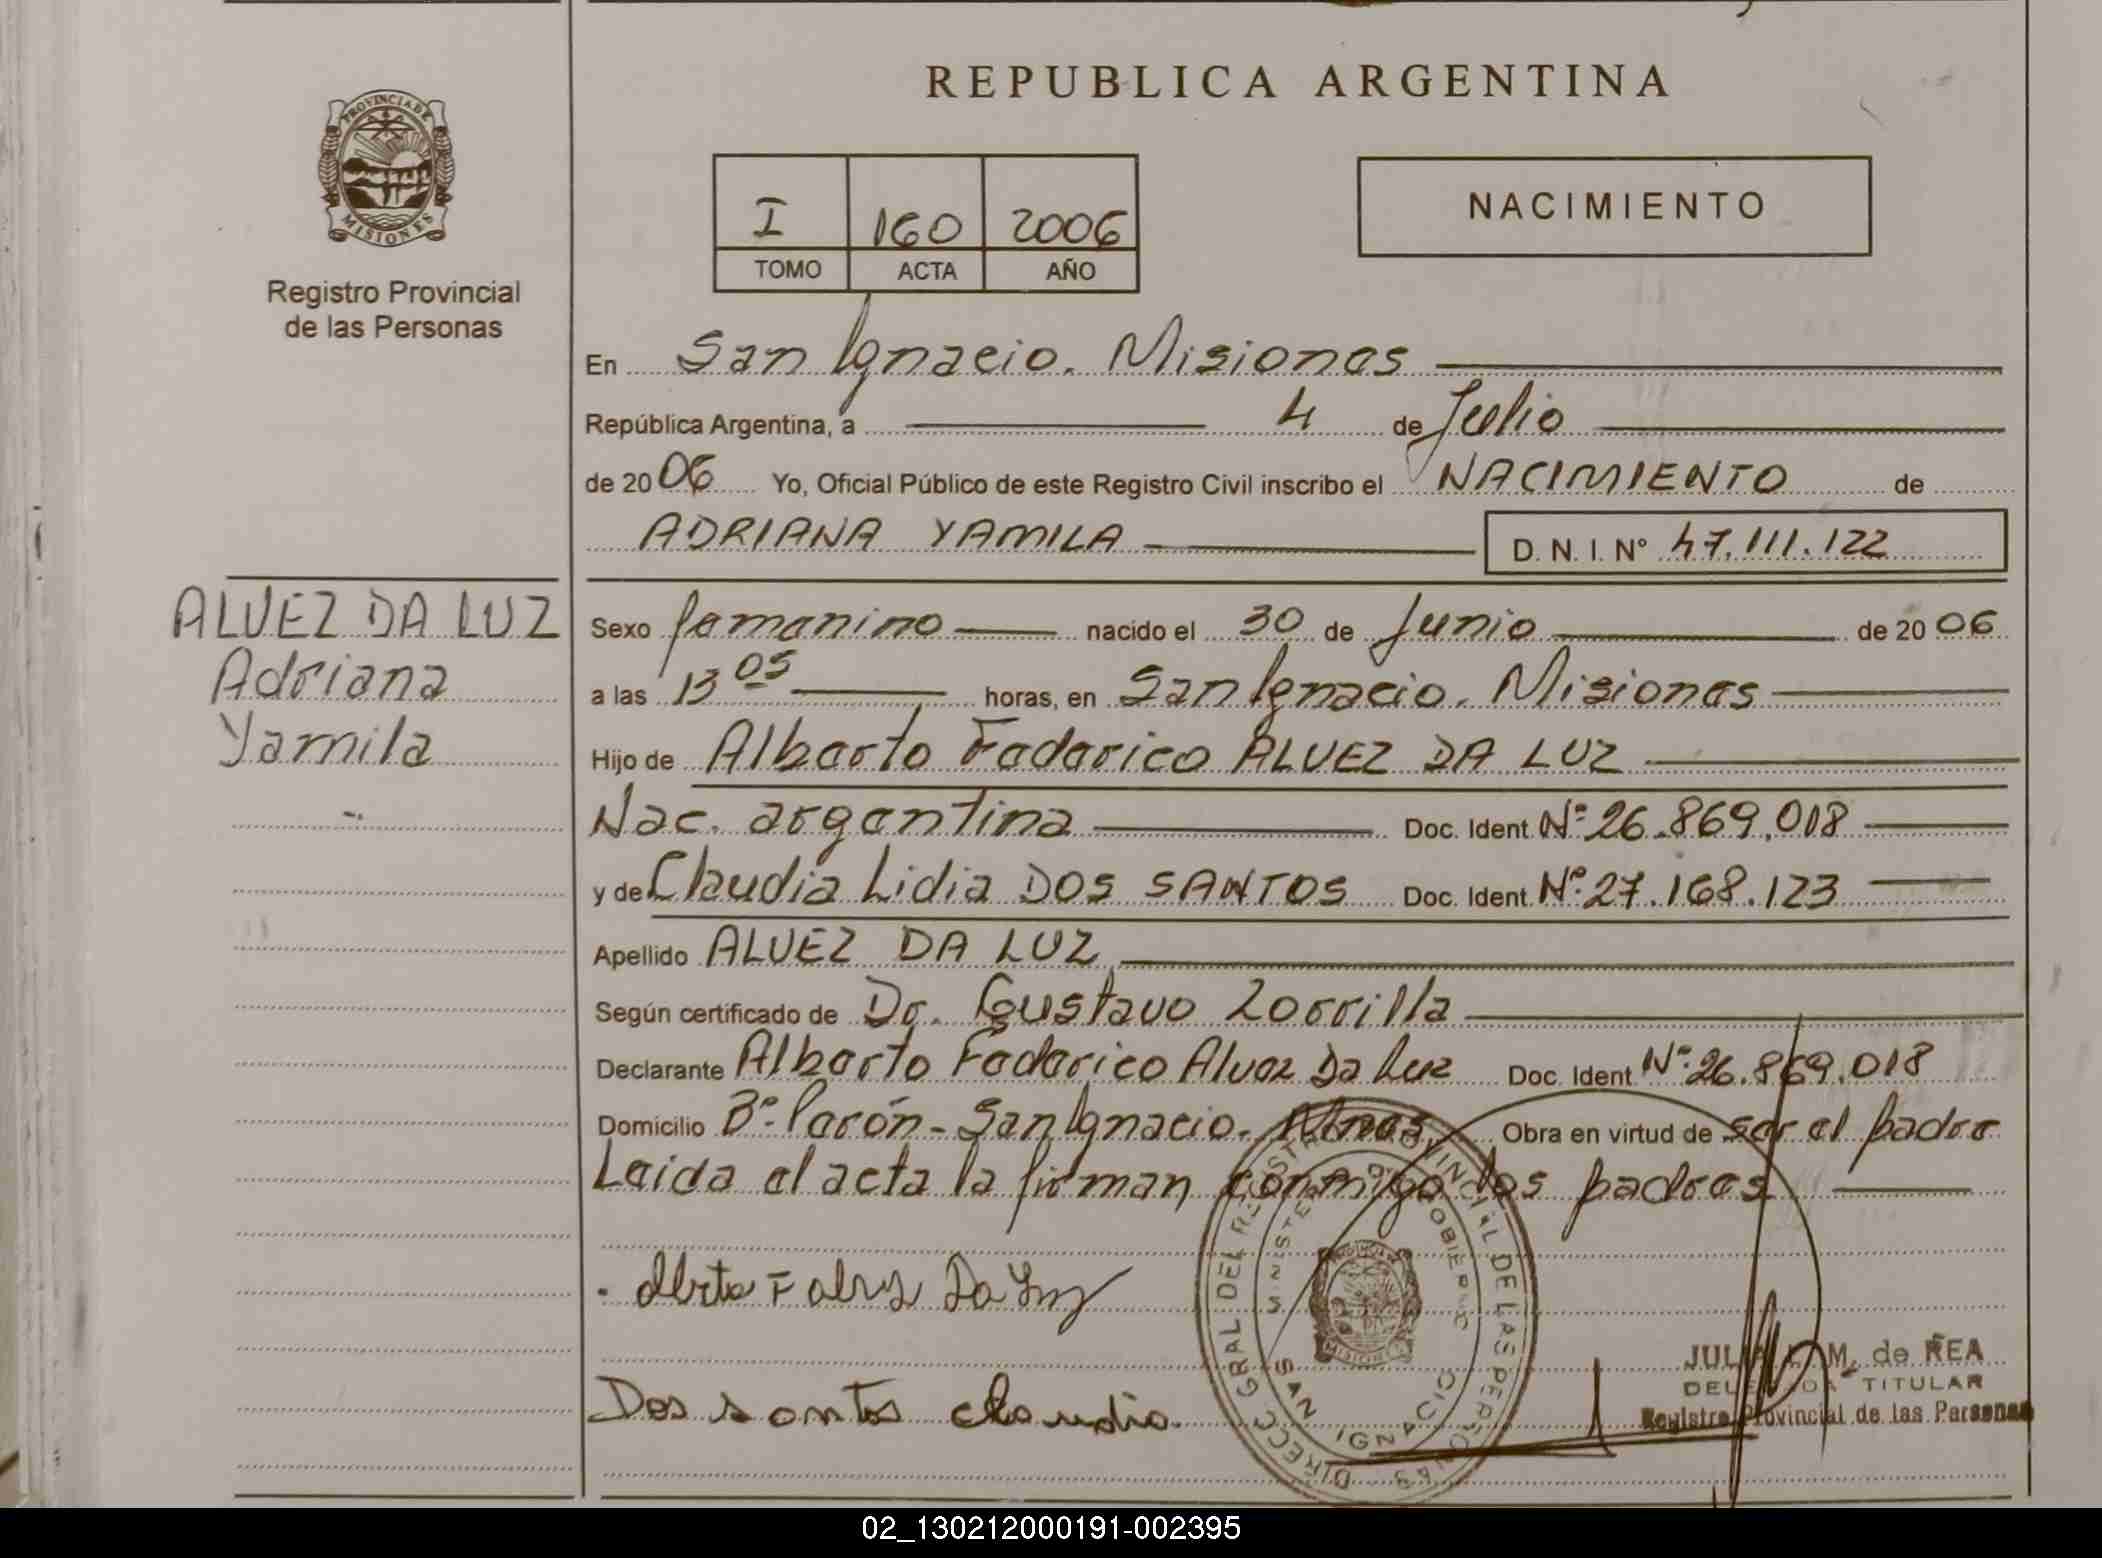 REPUBLICA ARGENTINA
PROVINCIA DE MISIONES
Registro Provincial
de las Personas
I 160 2006
TOMO ACTA AÑO
NACIMIENTO
En San Ignacio. Misiones
República Argentina, a 4 de Julio
de 2006 Yo, Oficial Público de este Registro Civil inscribo el NACIMIENTO de
ADRIANA YAMILA D. N. I. Nº 47.111.122
ALVEZ DA LUZ
Adriana
Yamila
Sexo femenino nacido el 30 de Junio de 2006
a las 13 05 horas, en San Ignacio. Misiones
Hijo de Alberto Federico ALVEZ DA LUZ
Nac. argentina Doc. Ident. Nº 26.869.018
y de Claudia Lidia DOS SANTOS Doc. Ident. Nº 27.168.123
Apellido ALVEZ DA LUZ
Según certificado de Dr. Gustavo Zorrilla
Declarante Alberto Federico Alvez Da Luz Doc. Ident. Nº 26.869.018
Domicilio Bº Perón - San Ignacio. Mnes. Obra en virtud de ser el padre
Leida el acta la firman conmigo los padres
Da Luz
Dos santos claudia
DIRECC GRAL DEL REGISTRO PROVINCIAL DE LAS PERSONAS
MINISTERIO DE GOBIERNO
SAN IGNACIO
M. de REA
TITULAR
Registro Provincial de las Personas
02_130212000191-002395